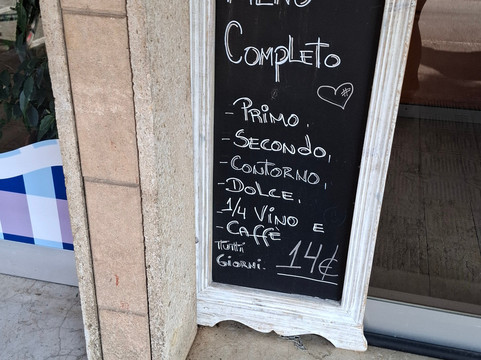 MENÙ
COMPLETO
- PRIMO.
- SECONDO,
- CONTORNO,
- DOLCE,
- 1/4 VINO E
- CAFFÈ
TUTTI
GIORNI. 14€